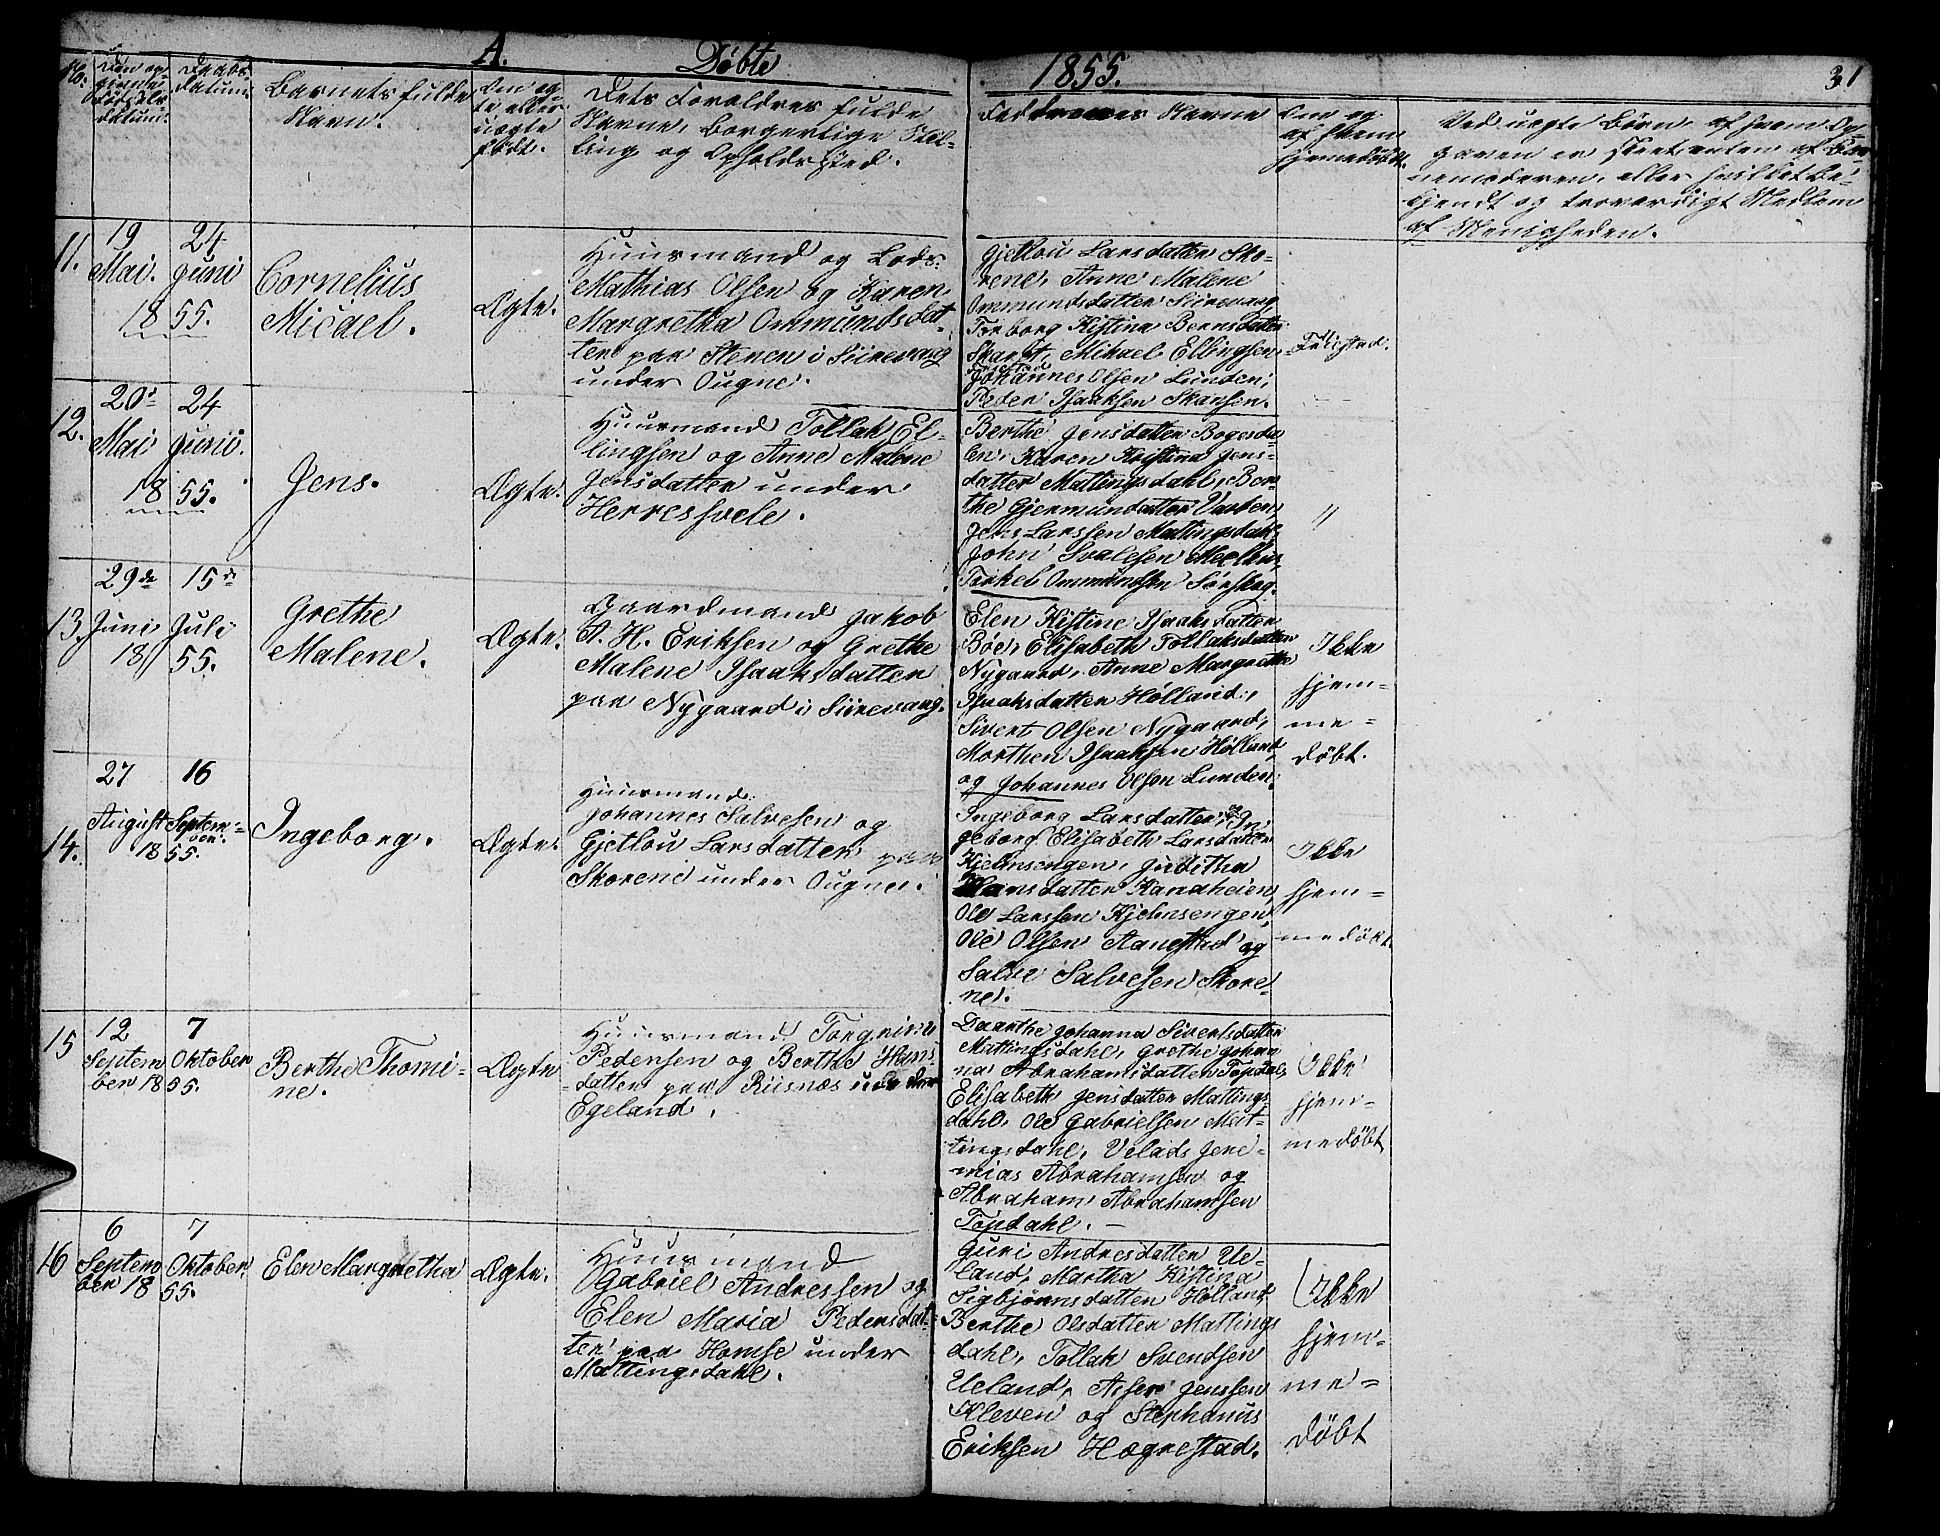 A. Døbte 1855. 31
No.
Den op-
givne
Fødsels-
datum.
Daabs-
datum.
Barnets fulde
Navn.
Om æg-
te eller
uægte
født.
Dets Forældres fulde
Navne, borgerlige Stil-
ling og Opholdssted.
Faddernes Navne
Om og
af hvem
hjemmedøbt.
Ved uægte Børn af hvem Op-
gaven er
nemoderen, eller hvilket be-
kjendt og troværdigt Medlem
af Menigheden.
11.
19
Mai.
24
Juni
1855.
Cornelius
Micael.
Ægte.
Huusmand og Lods
Mathias Olsen og Karen
Margretha Ommundsdat-
ter paa Stenen i Siirevaag
under Ougne.
Gjetlou Larsdatter Sko-
rene, Anne Malene
Ommundsdatter Siirevaag,
Torborg Kistina Berntsdatter
Skaret, Mikael Ellingsen
Fuglestad.
Johannes Olsen Lunden,
Peder Isaaksen Skansen.
12.
20de
Mai
24
Juni.
1855.
Jens.
Ægte.
Huusmand Tollak El-
lingsen og Anne Malene
Jensdatter under
Herresvele.
Berthe Jensdatter Bogesda-
len, Karen Kristina Jens-
datter Mattingsdahl, Ber-
the Gjermundatter
Jens Larssen Mattingsdahl,
John Svalesen
Torkel Ommundsen Sørskog.
"
13.
29de
Juni
15de
Juli
1855.
Grethe
Malene.
Ægte.
Gaardmand Jakob
A. H. Eriksen og Grethe
Malene Isaaksdatter
paa Nygaard i Siirevaag.
Elen Kistine Isaaksdatter
Bøe, Elisabeth Tollaksdatter
Nygaard, Anne Margrethe
Isaaksdatter Hølland,
Sivert Olsen Nygaard,
Morthen Isaaksen Hølland
og Johannes Olsen Lunden.
Ikke
hjem-
me-
døbt.
14.
27
August
16
Septem-
ber.
1855.
Ingeborg.
Ægte.
Huusmand
Johannes Salvesen og
Gjetlou Larsdatter paa
Skorene under Ougne.
Ingeborg Larsdatter, og In-
geborg Elisabeth Larsdatter
Kjelmsengen, Juditha
Hansdatter Kanaheien,
Ole Larssen Kjelmsengen,
Ole Olsen Aanestad og
Salve Salvesen Skore-
ne.
Ikke
hjem-
medøbt.
15
12
Septem
ber
7
Oktober
1855.
Berthe Thomi-
ne.
Ægte
Huusmand Torgrim
Pedersen og Berthe Hans-
datter paa Riisnæs under
Egeland.
Daarthe Johanna Sivertsdatter
Mattingsdahl, Grethe Johan
na Abrahamsdatter Topdal,
Elisabeth Jensdatter Mattings-
dahl, Ole Gabrielsen Mat-
tingsdahl, Velads Jere-
mias Abrahamsen og
Abraham Abrahamsen
Topdahl. —
Ikke
hjem-
medøbt
16
6
Septem
ber
7
Oktober
1855.
Elen Margretha
Ægte.
Huusmand
Gabriel Andressen og
Elen Maria Pedersdat-
ter paa Homse under
Mattingsdahl.
Guri Andresdatter Ue-
land, Martha Kistina
Sigbjørnsdatter Hølland,
Berthe Olsdatter Mattings
dahl, Tollak Svendsen
Ueland, Asser Jenssen
Kleven og Stephanus
Eriksen Hægrestad.
Ikke
hjem-
me-
døbt